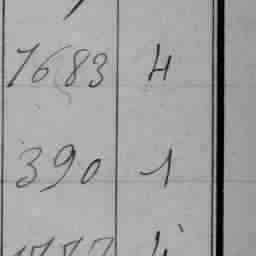 1683 4
390 1